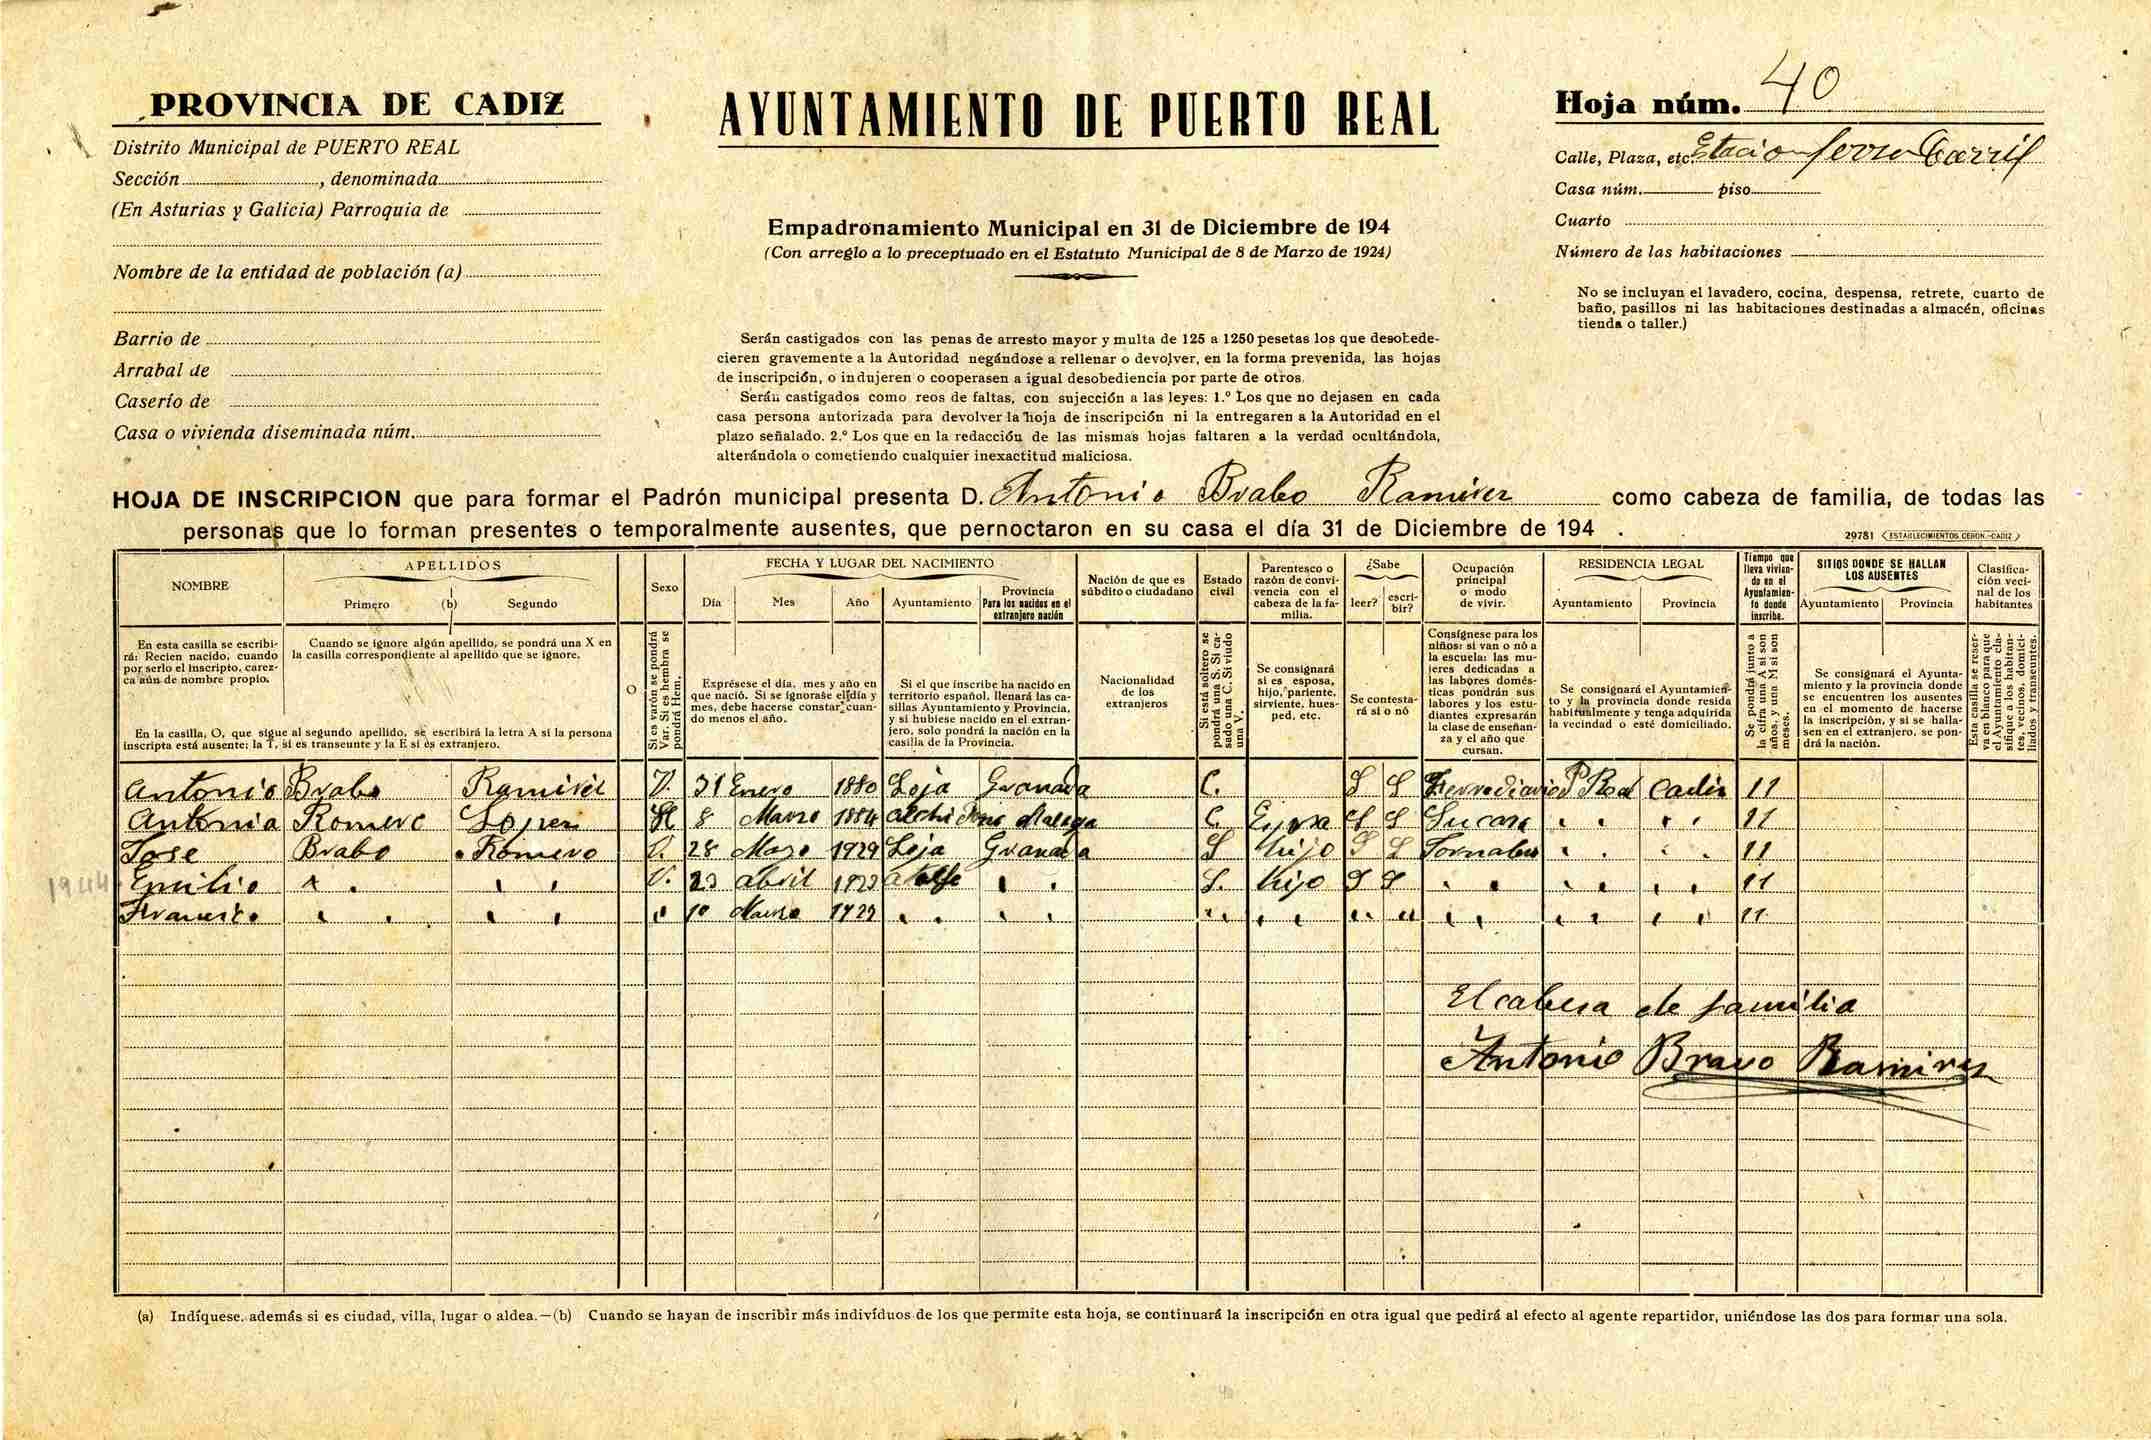 PROVINCIA DE CADIZ
Distrito Municipal de PUERTO REAL
Sección, denominada
(En Asturias y Galicia) Parroquia de
Nombre de la entidad de población (a)
Barrio de
Arrabal de
Caserío de
Casa o vivienda diseminada núm.
AYUNTAMIENTO DE PUERTO REAL
Empadronamiento Municipal en 31 de Diciembre de 194
(Con arreglo a lo preceptuado en el Estatuto Municipal de 8 de Marzo de 1924)
Serán castigados con las penas de arresto mayor y multa de 125 a 1250 pesetas los que desobede-
cieren gravemente a la Autoridad negándose a rellenar o devolver, en la forma prevenida, las hojas
de inscripción, o indujeren o cooperasen a igual desobediencia por parte de otros.
Serán castigados como reos de faltas, con sujección a las leyes: 1.º Los que no dejasen en cada
casa persona autorizada para devolver la hoja de inscripción ni la entregaren a la Autoridad en el
plazo señalado. 2.º Los que en la redacción de las mismas hojas faltaren a la verdad ocultándola,
alterándola o cometiendo cualquier inexactitud maliciosa.
Hoja núm. 40
Calle, Plaza, etc. Estacion ferro Carril
Casa núm. piso
Cuarto
Número de las habitaciones
No se incluyan el lavadero, cocina, despensa, retrete, cuarto de
baño, pasillos ni las habitaciones destinadas a almacén, oficinas
tienda o taller.)
HOJA DE INSCRIPCION que para formar el Padrón municipal presenta D. Antonio Brabo Ramirez como cabeza de familia, de todas las
personas que lo forman presentes o temporalmente ausentes, que pernoctaron en su casa el día 31 de Diciembre de 194 .
29781 (ESTABLECIMIENTOS CERON.-CADIZ)
NOMBRE
APELLIDOS
Primero (b) Segundo
O
Sexo
FECHA Y LUGAR DEL NACIMIENTO
Día Mes Año Ayuntamiento
Provincia
Para los nacidos en el
extranjero nación
Nación de que es
súbdito o ciudadano
Estado
civil
Parentesco o
razón de convi-
vencia con el
cabeza de la fa-
milia.
¿Sabe
leer? escri-
bir?
Ocupación
principal
o modo
de vivir.
RESIDENCIA LEGAL
Ayuntamiento Provincia
Tiempo que
lleva vivien-
do en el
Ayuntamien-
to donde
inscribe.
SITIOS DONDE SE HALLAN
LOS AUSENTES
Ayuntamiento Provincia
Clasifica-
ción veci-
nal de los
habitantes
En esta casilla se escribi-
rá: Recien nacido, cuando
por serlo el inscripto, carez-
ca aún de nombre propio.
Cuando se ignore algún apellido, se pondrá una X en
la casilla correspondiente al apellido que se ignore.
En la casilla, O, que sigue al segundo apellido, se escribirá la letra A si la persona
inscripta está ausente; la T, si es transeunte y la E si es extranjero.
Si es varón se pondrá
Var. Si es hembra se
pondrá Hem.
Exprésese el día, mes y año en
que nació. Si se ignorase el día y
mes, debe hacerse constar cuan-
do menos el año.
Si el que inscribe ha nacido en
territorio español, llenará las ca-
sillas Ayuntamiento y Provincia,
y si hubiese nacido en el extran-
jero, solo pondrá la nación en la
casilla de la Provincia.
Nacionalidad
de los
extranjeros
Si está soltero se
pondrá una S. Si ca-
sado una C. Si viudo
una V.
Se consignará
si es esposa,
hijo, pariente,
sirviente, hues-
ped, etc.
Se contesta-
rá si o nó
Consígnese para los
niños: si van o nó a
la escuela: las mu-
jeres dedicadas a
las labores domés-
ticas pondrán sus
labores y los estu-
diantes expresarán
la clase de enseñan-
za y el año que
cursan.
Se consignará el Ayuntamien-
to y la provincia donde resida
habitualmente y tenga adquirida
la vecindad o esté domiciliado.
Se pondrá junto a
la cifra una A si son
años, y una M si son
meses.
Se consignará el Ayunta-
miento y la provincia donde
se encuentren los ausentes
en el momento de hacerse
la inscripción, y si se halla-
sen en el extranjero, se pon-
drá la nación.
Esta casilla se reser-
va en blanco para que
el Ayuntamiento cla-
sifique a los habitan-
tes, vecinos, domici-
liados y transeuntes.
Antonio Brabo Ramirez V. 31 Enero 1880 Loja Granada C. S S P Real Cadiz 11
Antonia Romero Lopez H 8 Marzo 1884 Malaga C. Esposa S S Su casa " " " " 11
Jose Brabo Romero V. 28 1929 Loja Granada S hijo S S " " " " 11
1944 Emilio " " " " V. 23 abril 1923 " " S. hijo S S " " " " " " 11
Francisco " " " " " 10 Marzo " " " " " " " " " " " " " " " " 11
El cabesa de familia
Antonio Bravo Ramirez
(a) Indíquese además si es ciudad, villa, lugar o aldea.—(b) Cuando se hayan de inscribir más indivíduos de los que permite esta hoja, se continuará la inscripción en otra igual que pedirá al efecto al agente repartidor, uniéndose las dos para formar una sola.